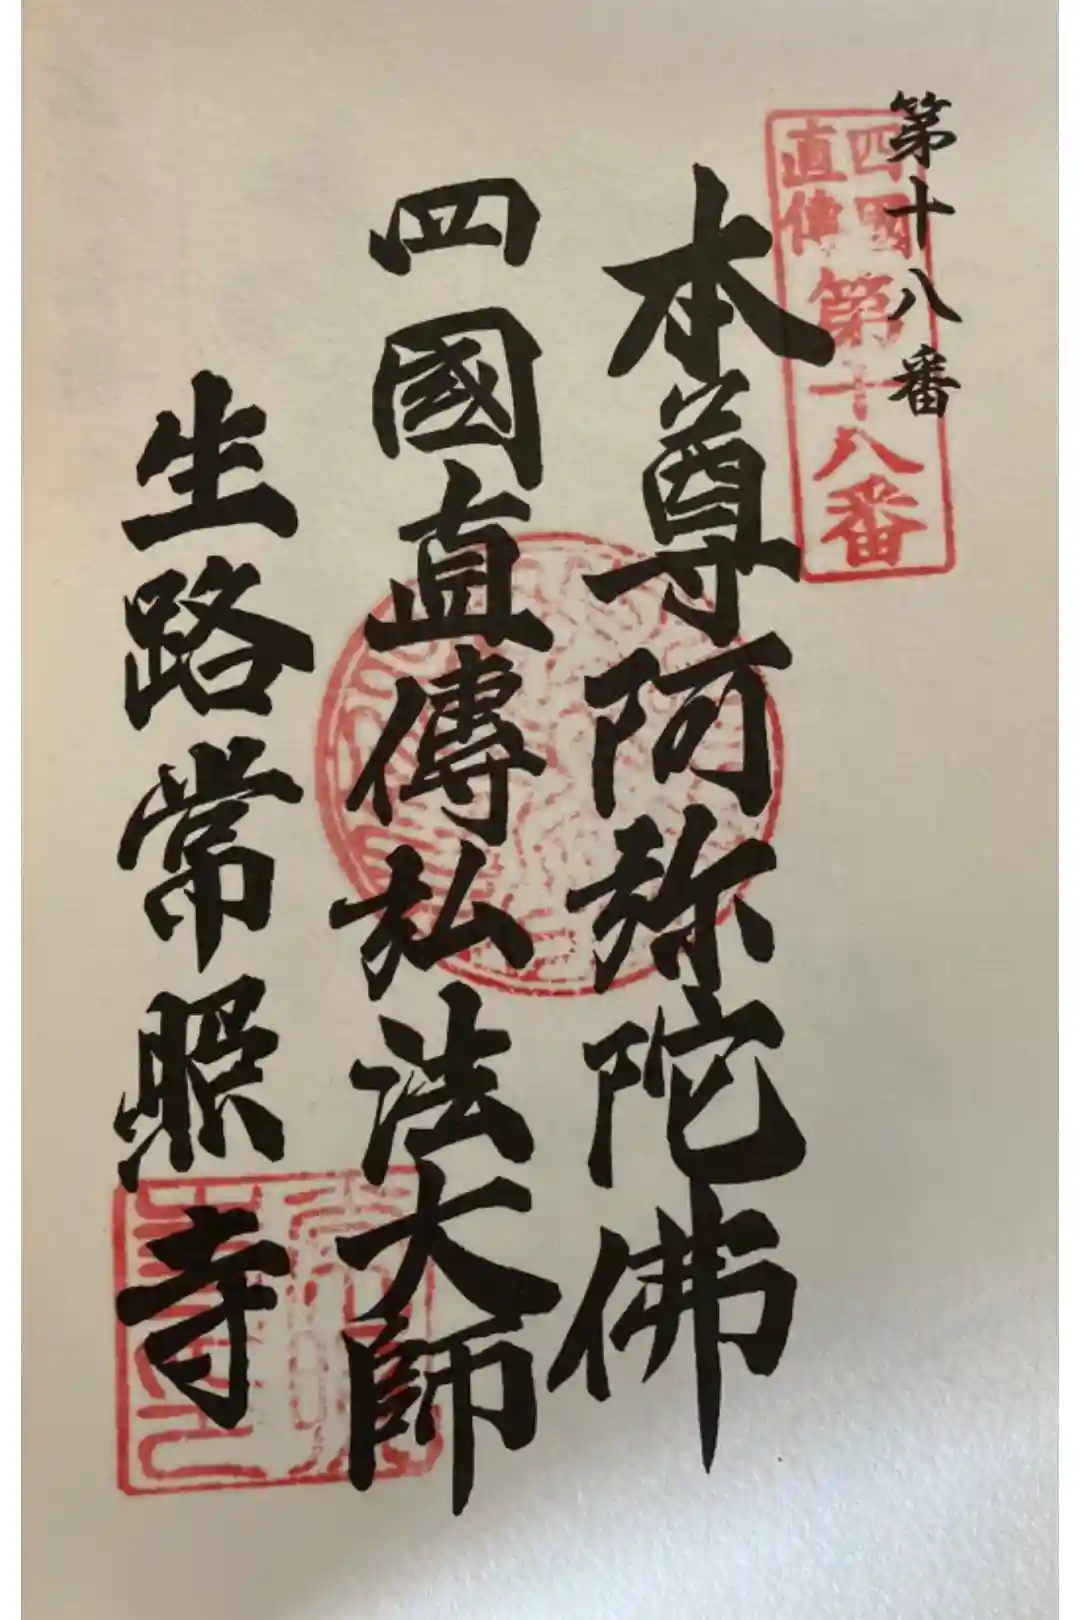 第十八番
四國
直傳
第十八番
本尊阿弥陀佛
四國直傳弘法大師
生路常照寺